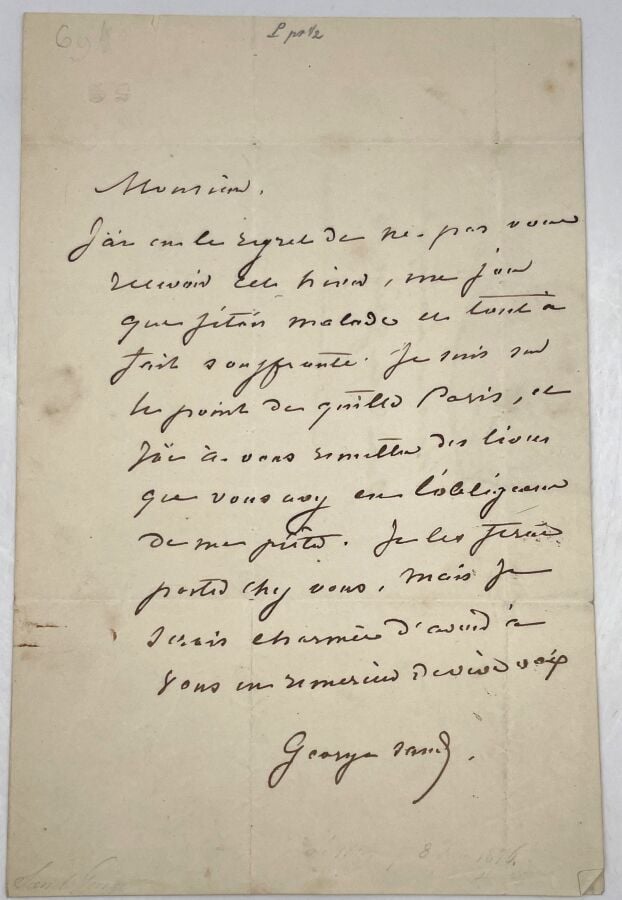 Monsieur.
J'ai eu le regret de ne pas vous
recevoir cet hiver, un jour
que j'étais malade et tout à
fait souffrante. Je suis sur
le point de quitter Paris, et
j'ai à vous remettre des livres
que vous avez eu l'obligeance
de me prêter. Je les ferai
porter chez vous, mais je
serais charmée d'avoir à
vous en remercier de vive voix
George Sand.